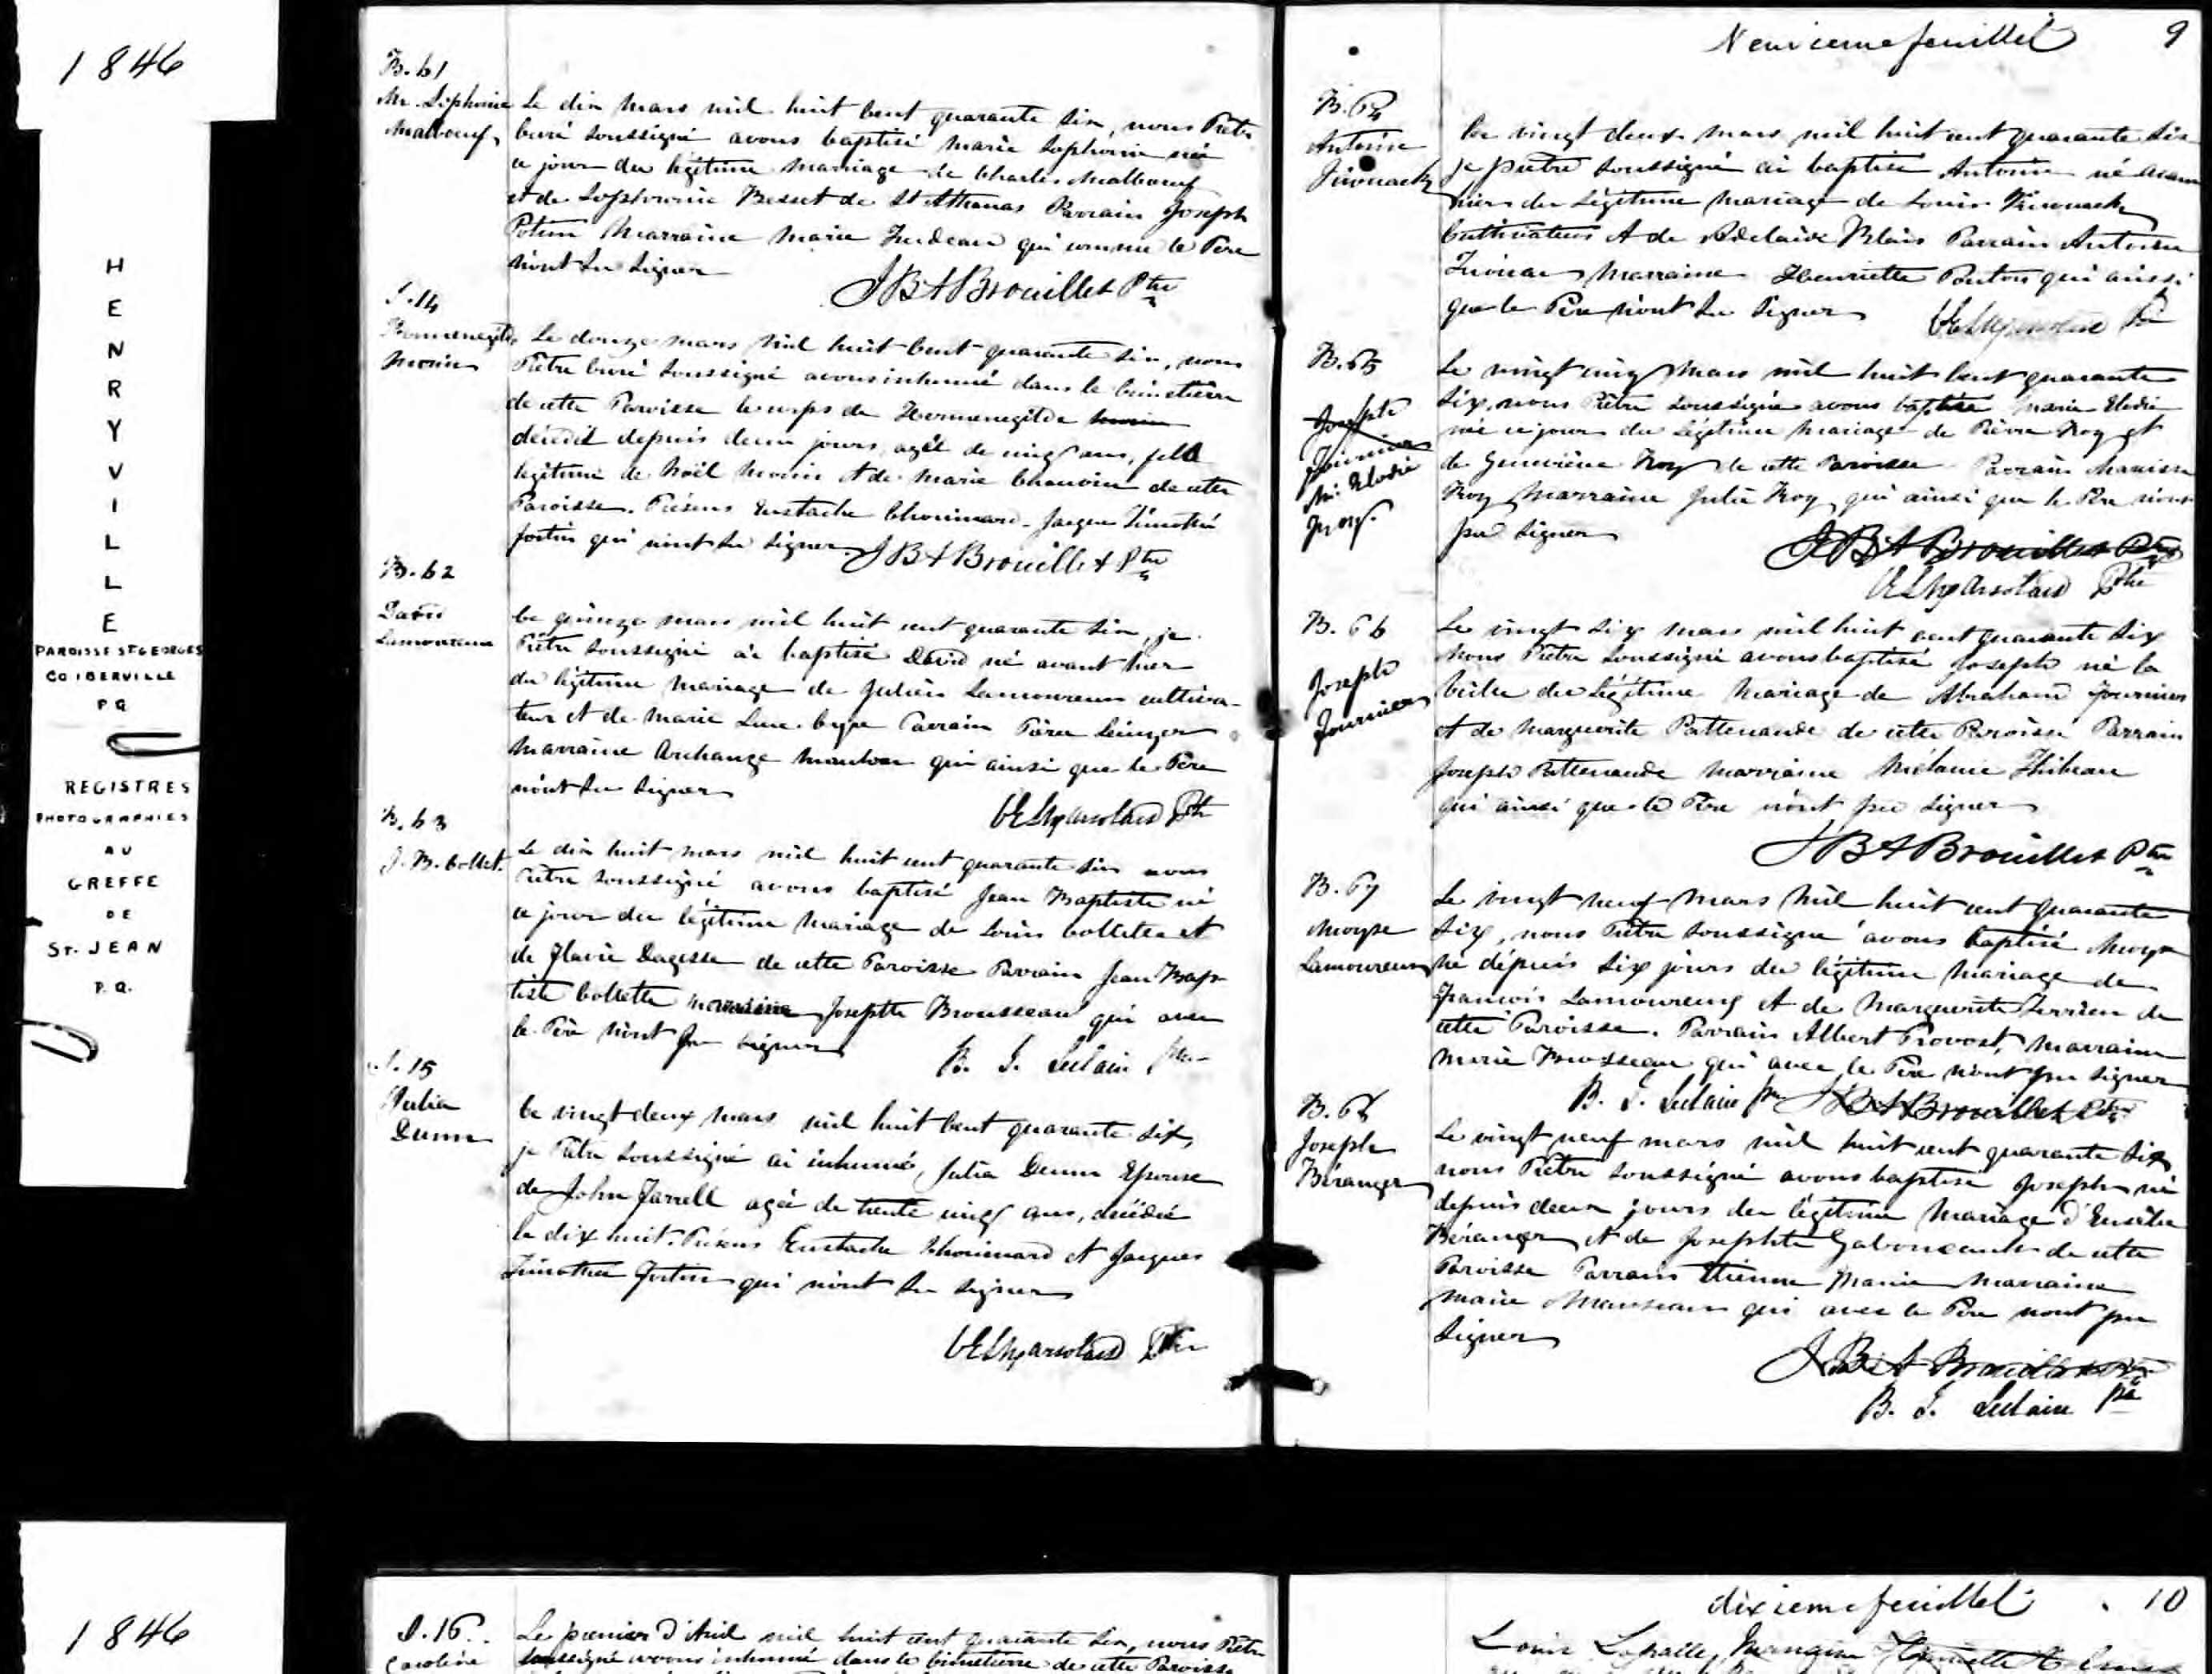 1846
HENRYVILLE
PAROISSE ST GEORGES
CO IBERVILLE
P Q
REGISTRES
PHOTOGRAPHIES
AU
GREFFE
DE
ST. JEAN
P. Q.
B. 61
Malboeuf
Le dix mars mil huit cent quarante six, nous Prêtre
Curé soussigné avons baptisé Marie Sophronie née
ce jour du légitime mariage de Charles Malboeuf
et de Sophronie Besset de St Athanas Parrain Joseph
Marraine Marie qui comme le Père
n'ont su signer
J B A Brouillet Ptre
S. 14
Hermenegilde
Morin
Le douze mars mil huit cent quarante six, nous
Prêtre Curé soussigné avons inhumé dans le cimetière
de cette Paroisse le corps de Hermenegilde
décédé depuis deux jours, agé de cinq ans, fils
légitime de Noël Morin et de Marie Chauvin de cette
Paroisse. Présens Eustache Chouinard. Jacques Timothé
fortin qui n'ont su signer. J B A Brouillet Ptre
B. 62
David
Lamoureux
Ce quinze mars mil huit cent quarante six, je
Prêtre soussigné ai baptisé David né avant hier
du légitime mariage de Julien Lamoureux cultiva-
teur et de Marie Luce Parrain
Marraine Archange qui ainsi que le Père
n'ont su signer
Ptr
B. 63
J. B. Collet.
Le dix huit mars mil huit cent quarante six nous
Prêtre soussigné avons baptisé Jean Baptiste né
ce jour du légitime mariage de Louis Collette et
de Flavie Dagesse de cette Paroisse Parrain Jean Bap-
tiste Collette marraine Josephte Brousseau qui avec
le Père n'ont pu signer
B. J. Leclaire Ptre
S. 15
Julia
Dunn
Ce vingt deux mars mil huit cent quarante six,
je Prêtre soussigné ai inhumé, Julia Dunn Epouse
de John Farrell agée de trente cinq ans, décédée
le dix huit. Présens Eustache Chouinard et Jacques
Timothée Fortin qui n'ont su signer
Ptre
Neuvieme feuillet 9
B. 64
Antoine
Ce vingt deux mars mil huit cent quarante six
je prêtre soussigné ai baptisé Antoine né avant
hier du Légitime mariage de Louis
Cultivateur et de Adelaide Blais Parrain Antoine
Marraine Henriette qui ainsi
que le Père n'ont su signer
B. 65
Josephte
Fournier
M. Elodie
Roy.
Le vingt cinq mars mil huit cent quarante
six, nous Prêtre soussigné avons baptisé Marie Elodie
née ce jour du Légitime mariage de Pierre Roy et
de Geneviève Roy de cette Paroisse Parrain
Roy Marraine Julie Roy, qui ainsi que le Père n'ont
pu signer
J B A Brouillet Ptre
Ptre
B. 66
Joseph
Fournier
Le vingt six mars mil huit cent quarante six
Nous Prêtre soussigné avons baptisé Joseph né la
veille du Légitime mariage de Abraham Fournier
et de Marguerite Pattenaude de cette Paroisse Parrain
Joseph Pattenaude Marraine Mélanie Thibeau
qui ainsi que le Père n'ont pu signer
J B A Brouillet Ptre
B. 67
Moyse
Lamoureux
Le vingt neuf Mars mil huit cent quarante
six, nous Prêtre soussigné avons baptisé Moyse
né depuis six jours du légitime mariage de
François Lamoureux et de Marguerite Terrien de
cette Paroisse. Parrain Albert Provost, Marraine
Marie Brosseau qui avec le Père n'ont pu signer
B. J. Leclaire Ptre J B A Brouillet Ptre
B. 68
Joseph
Béranger
Le vingt neuf mars mil huit cent quarante six
nous Prêtre soussigné avons baptisé Joseph né
depuis deux jours du légitime mariage d'Eusèbe
Béranger et de Josephte de cette
Paroisse Parrain Etienne Marraine
Marie qui avec le Père n'ont pu
signer
J B A Brouillet Ptre
B. J. Leclaire Ptre
1846
S. 16.
Caroline
Le premier d'Avril mil huit cent quarante six, nous Prêtre
soussigné avons inhumé dans le cimetierre de cette Paroisse
dixieme feuillet 10
Louis